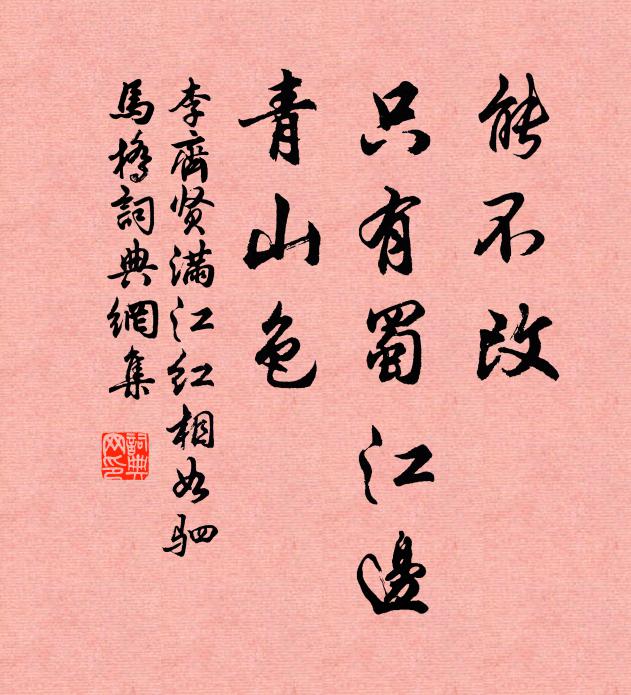 能不改
只有蜀江邊
青山色
李齊贤满江红相如驷
馬橋詞典網集
詞典网印